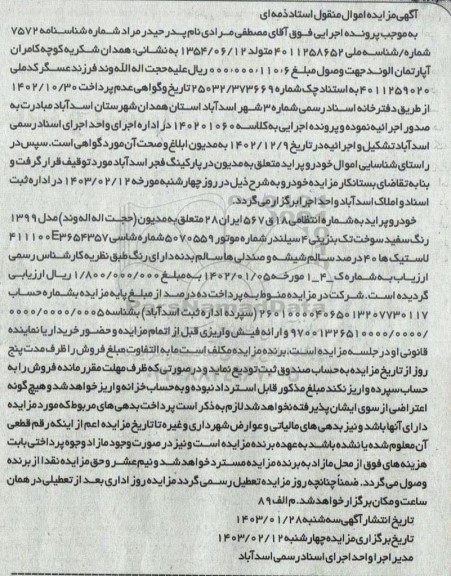 آگهی مزایده اموال منقول اسناد ذمه ای
به موجب پرونده اجرایی فوق آقای مصطفی مرادی نام پدر حیدر مراد شماره شناسنامه ۷۵۷۲
شماره/شناسه ملی ۴۰۱۱۲۵۸۶۵۲ متولد ۱۳۵۴/۰۶/۱۲ به نشانی: همدان شکریه کوچه کامران
آپارتمان الوند جهت وصول مبلغ ۶,۱۱۰,۰۰۰,۰۰۰ ریال علیه حجت اله اله وند فرزند عسگر کد ملی
۴۰۱۱۲۵۹۰۲۰ به استناد چک شماره ۲۵۰۳۲/۳۷۳۶۶۹ تاریخ و گواهی عدم پرداخت ۱۴۰۲/۱۰/۳۰
از طریق دفترخانه اسناد رسمی شماره ۳ شهر اسدآباد استان همدان شهرستان اسدآباد مبادرت به
صدور اجرائیه نموده و پرونده اجرایی به کلاسه ۱۴۰۲۰۱۰۶۰ در اداره اجرای واحد اجرای اسناد رسمی
اسدآباد تشکیل و اجرائیه در تاریخ ۱۴۰۲/۱۲/۹ به مدیون ابلاغ و صحت آن مورد گواهی است. سپس در
راستای شناسایی اموال خودرو پراید متعلق به مدیون در پارکینگ فجر اسدآباد مورد توقیف قرار گرفت و
بنا به تقاضای بستانکار مزایده خودرو به شرح ذیل در روز چهارشنبه مورخه ۱۴۰۳/۰۲/۱۲ در اداره ثبت
اسناد و املاک اسدآباد واحد اجرا برگزار می گردد.
خودرو پراید به شماره انتظامی ۱۸ق۵۶۷ ایران ۲۸ متعلق به مدیون (حجت اله اله وند) مدل ۱۳۹۹
رنگ سفید سوخت تک بنزینی ۴ سیلندر شماره موتور ۵۰۷۰۵۵۹ شماره شاسی ۴۱۱۱۰۰E۳۶۵۴۳۵۷
لاستیک ها ۴۰ درصد سالم شیشه و صندلی ها سالم بدنه دارای رنگ طبق نظریه کارشناس رسمی
ارزیاب به شماره ک_۴_۱ مورخه ۱۴۰۲/۰۱/۰۵ به مبلغ ۱/۸۰۰/۰۰۰/۰۰۰ ریال ارزیابی
گردیده است. شرکت در مزایده منوط به پرداخت ده درصد از مبلغ پایه مزایده بشماره حساب
(سپرده اداره ثبت اسدآباد) بشناسه ۰۰۵
و ارائه فیش واریزی قبل از اتمام مزایده و حضور خریدار یا نماینده
قانونی او در جلسه مزایده است. برنده مزایده مکلف است مابه التفاوت مبلغ فروش را ظرف مدت پنج
روز از تاریخ مزایده به حساب صندوق ثبت تودیع نماید و در صورتی که ظرف مهلت مقرر مانده فروش را به
حساب سپرده واریز نکند مبلغ مذکور قابل استرداد نبوده و به حساب خزانه واریز خواهد شد و هیچ گونه
اعتراضی از سوی ایشان پذیرفته نخواهد شد لازم به ذکر است پرداخت بدهی های مربوط که مورد مزایده
دارای آنها باشد و نیز بدهی های مالیاتی و عوارض شهرداری و غیره تا تاریخ مزایده اعم از اینکه رقم قطعی
آن معلوم شده یا نشده باشد به عهده برنده مزایده است و نیز در صورت وجود مازاد وجوه پرداختی بابت
هزینه های فوق از محل مازاد به برنده مزایده مسترد خواهد شد و نیم عشر و حق مزایده نقدا از برنده
وصول می گردد. ضمناً چنانچه روز مزایده تعطیل رسمی گردد مزایده روز اداری بعد از تعطیلی در همان
ساعت و مکان برگزار خواهد شد. م الف ۸۹
تاریخ انتشار آگهی سه شنبه ۱۴۰۳/۰۱/۲۸
تاریخ برگزاری مزایده چهارشنبه ۱۴۰۳/۰۲/۱۲
مدیر اجرا واحد اجرای اسناد رسمی اسدآباد